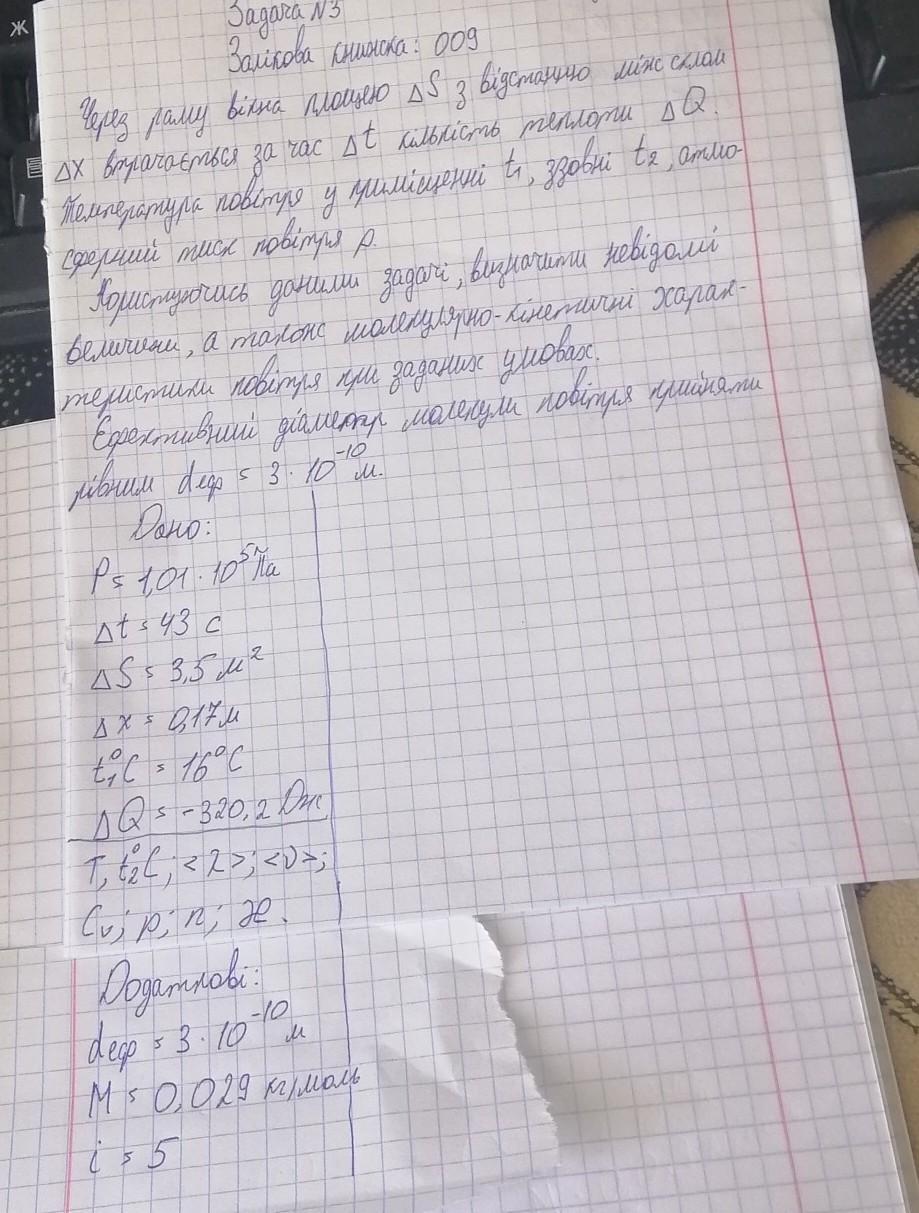 ж
Задача N3
Залікова книжка: 009
Через раму вікна площею ΔS з відстанню між склом
Δx втрачається за час Δt кількість теплоти ΔQ.
Температура повітря у приміщенні t₁, ззовні t₂, атмо-
сферний тиск повітря p.
Користуючись даними задачі, визначити невідомі
величини, а також молекулярно-кінетичні харак-
теристики повітря при заданих умовах.
Ефективний діаметр молекули повітря прийняти
рівним dеф = 3 · 10⁻¹⁰ м.
Дано:
P = 1,01 · 10⁵ Па
Δt = 43 с
ΔS = 3,5 м²
Δx = 0,17 м
t₁°C = 16°C
ΔQ = -320,2 Дж
T, t₂°C; <λ>; <υ>;
Cᵥ; ρ; n; æ.
Додаткові:
dеф = 3 · 10⁻¹⁰ м
M = 0,029 кг/моль
i = 5